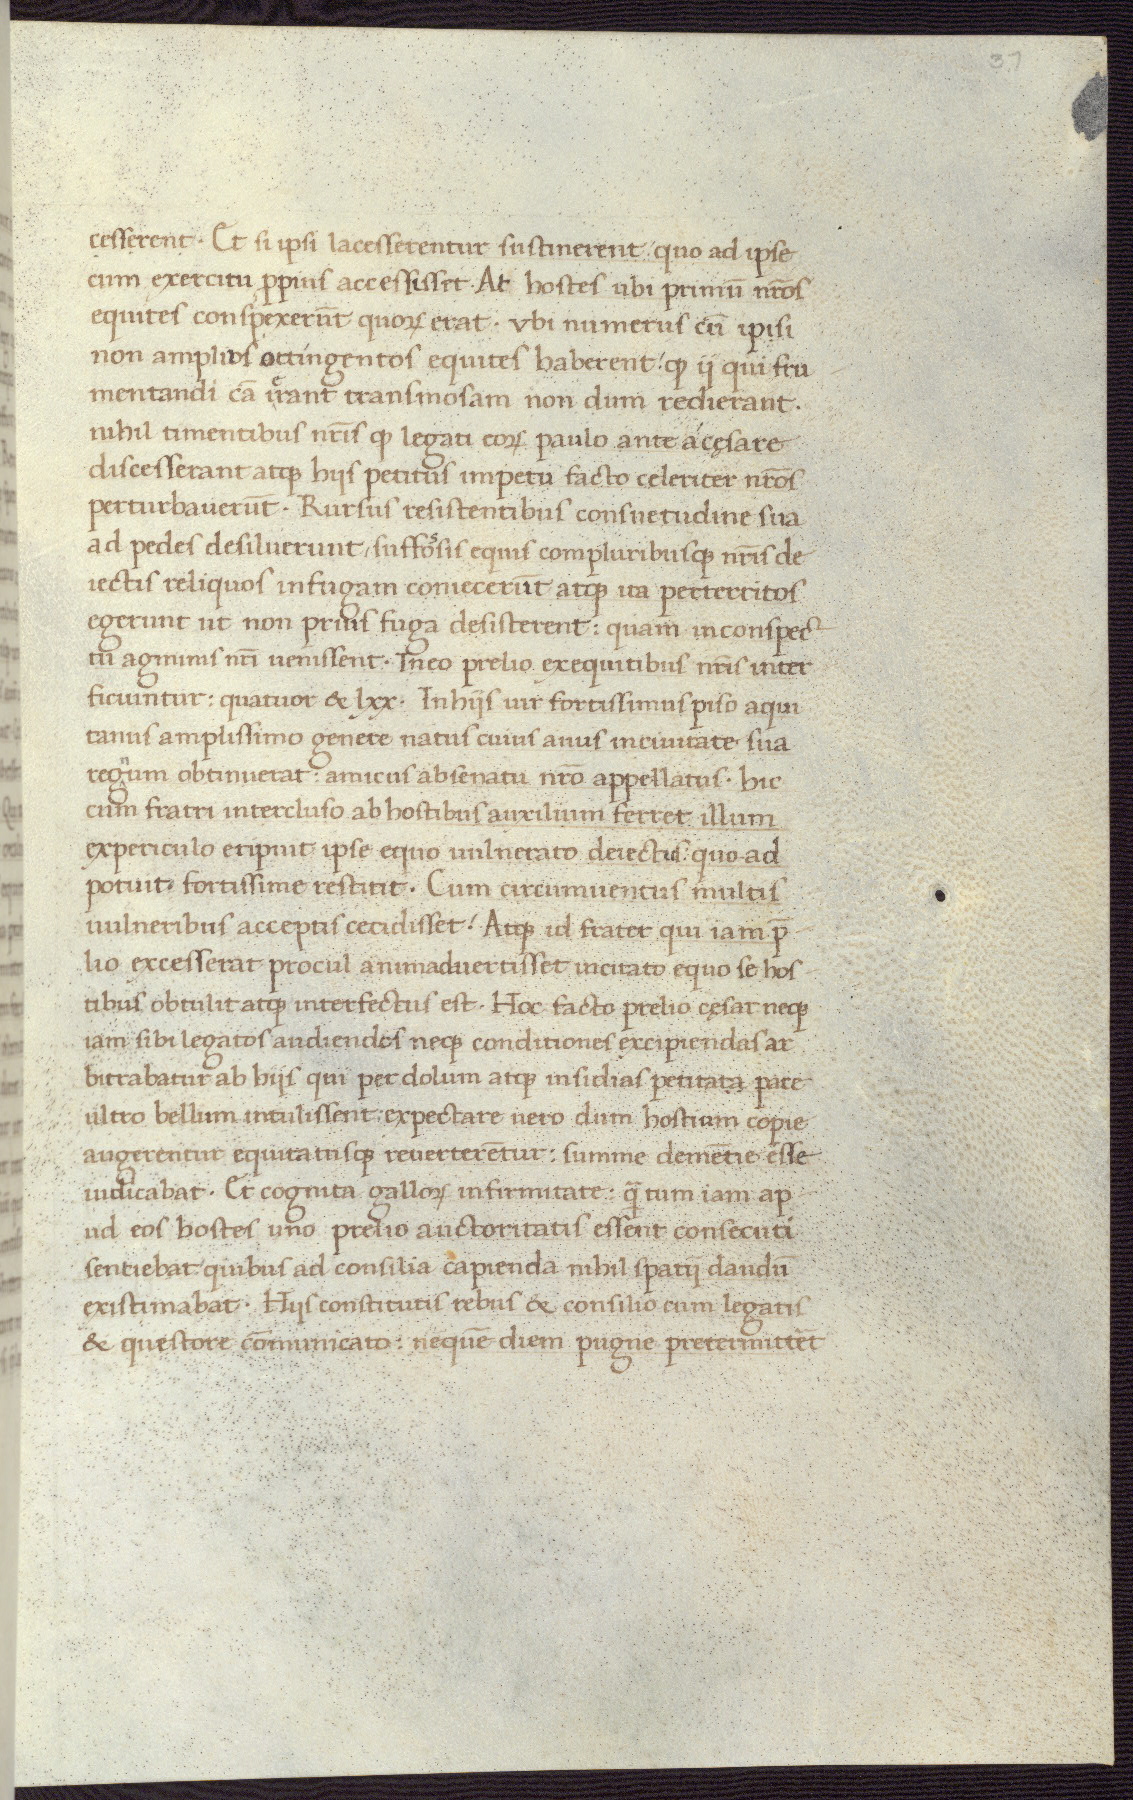 37
cesserent. Et si ipsi lacesserentur sustinerent / quo ad ipse
cum exercitu ꝓpius accessisset. At hostes ubi primū nr̄os
equites conspexerūt quoꝝ erat. vbi numerus cū ipisi
non amplius octingentos equites haberent / qꝫ ij qui fru
mentandi cā ierant transmosam non dum redierant.
nihil timentibus nr̄is qꝫ legati eoꝝ paulo ante a cęsare
discesserant atqꝫ hijs petitus impetu facto celeriter nr̄os
perturbauerūt. Rursus resistentibus consuetudine sua
ad pedes desiluerunt / suffossis equis compluribusqꝫ nr̄is de
iectis reliquos infugam coniecerūt atqꝫ ita perterritos
egerunt ut non prius fuga desisterent: quam inconspec
tū agminis nr̄i uenissent. Ineo prelio exequitibus nr̄is inter
ficiuntur: quatuor & lxx. Inhijs uir fortissimus piso aqui
tanus amplissimo genere natus cuius auus inciuitate sua
regnum obtinuerat: amicus absenatu nr̄o appellatus. hic
cum fratri intercluso ab hostibus auxilium ferret illum
expericulo eripuit ipse equo uulnerato deiectis: quo ad
potuit fortissime restitit. Cum circumuentus multis
uulneribus acceptis cecidisset / Atqꝫ id frater qui iam p̄
lio excesserat procul animaduertisset incitato equo se hos
tibus obtulit atqꝫ interfectus est. Hoc facto prelio cęsar neqꝫ
iam sibi legatos audiendos neqꝫ conditiones excipiendas ar
bitrabatur ab hijs qui per dolum atqꝫ insidias petitata pace
ultro bellum intulissent: expectare uero dum hostium copie
augerentur equitatusqꝫ reuerterētur: summe demētie esse
iudicabat. Et cognita galloꝝ infirmitate: qᷓtum iam ap
ud eos hostes uno prelio auctoritatis essent consecuti
sentiebat quibus ad consilia capienda nihil spatij daudū
existimabat. Hijs constitutis rebus & consilio cum legatis
& questore cōmunicato: nequē diem pugne pretermittet